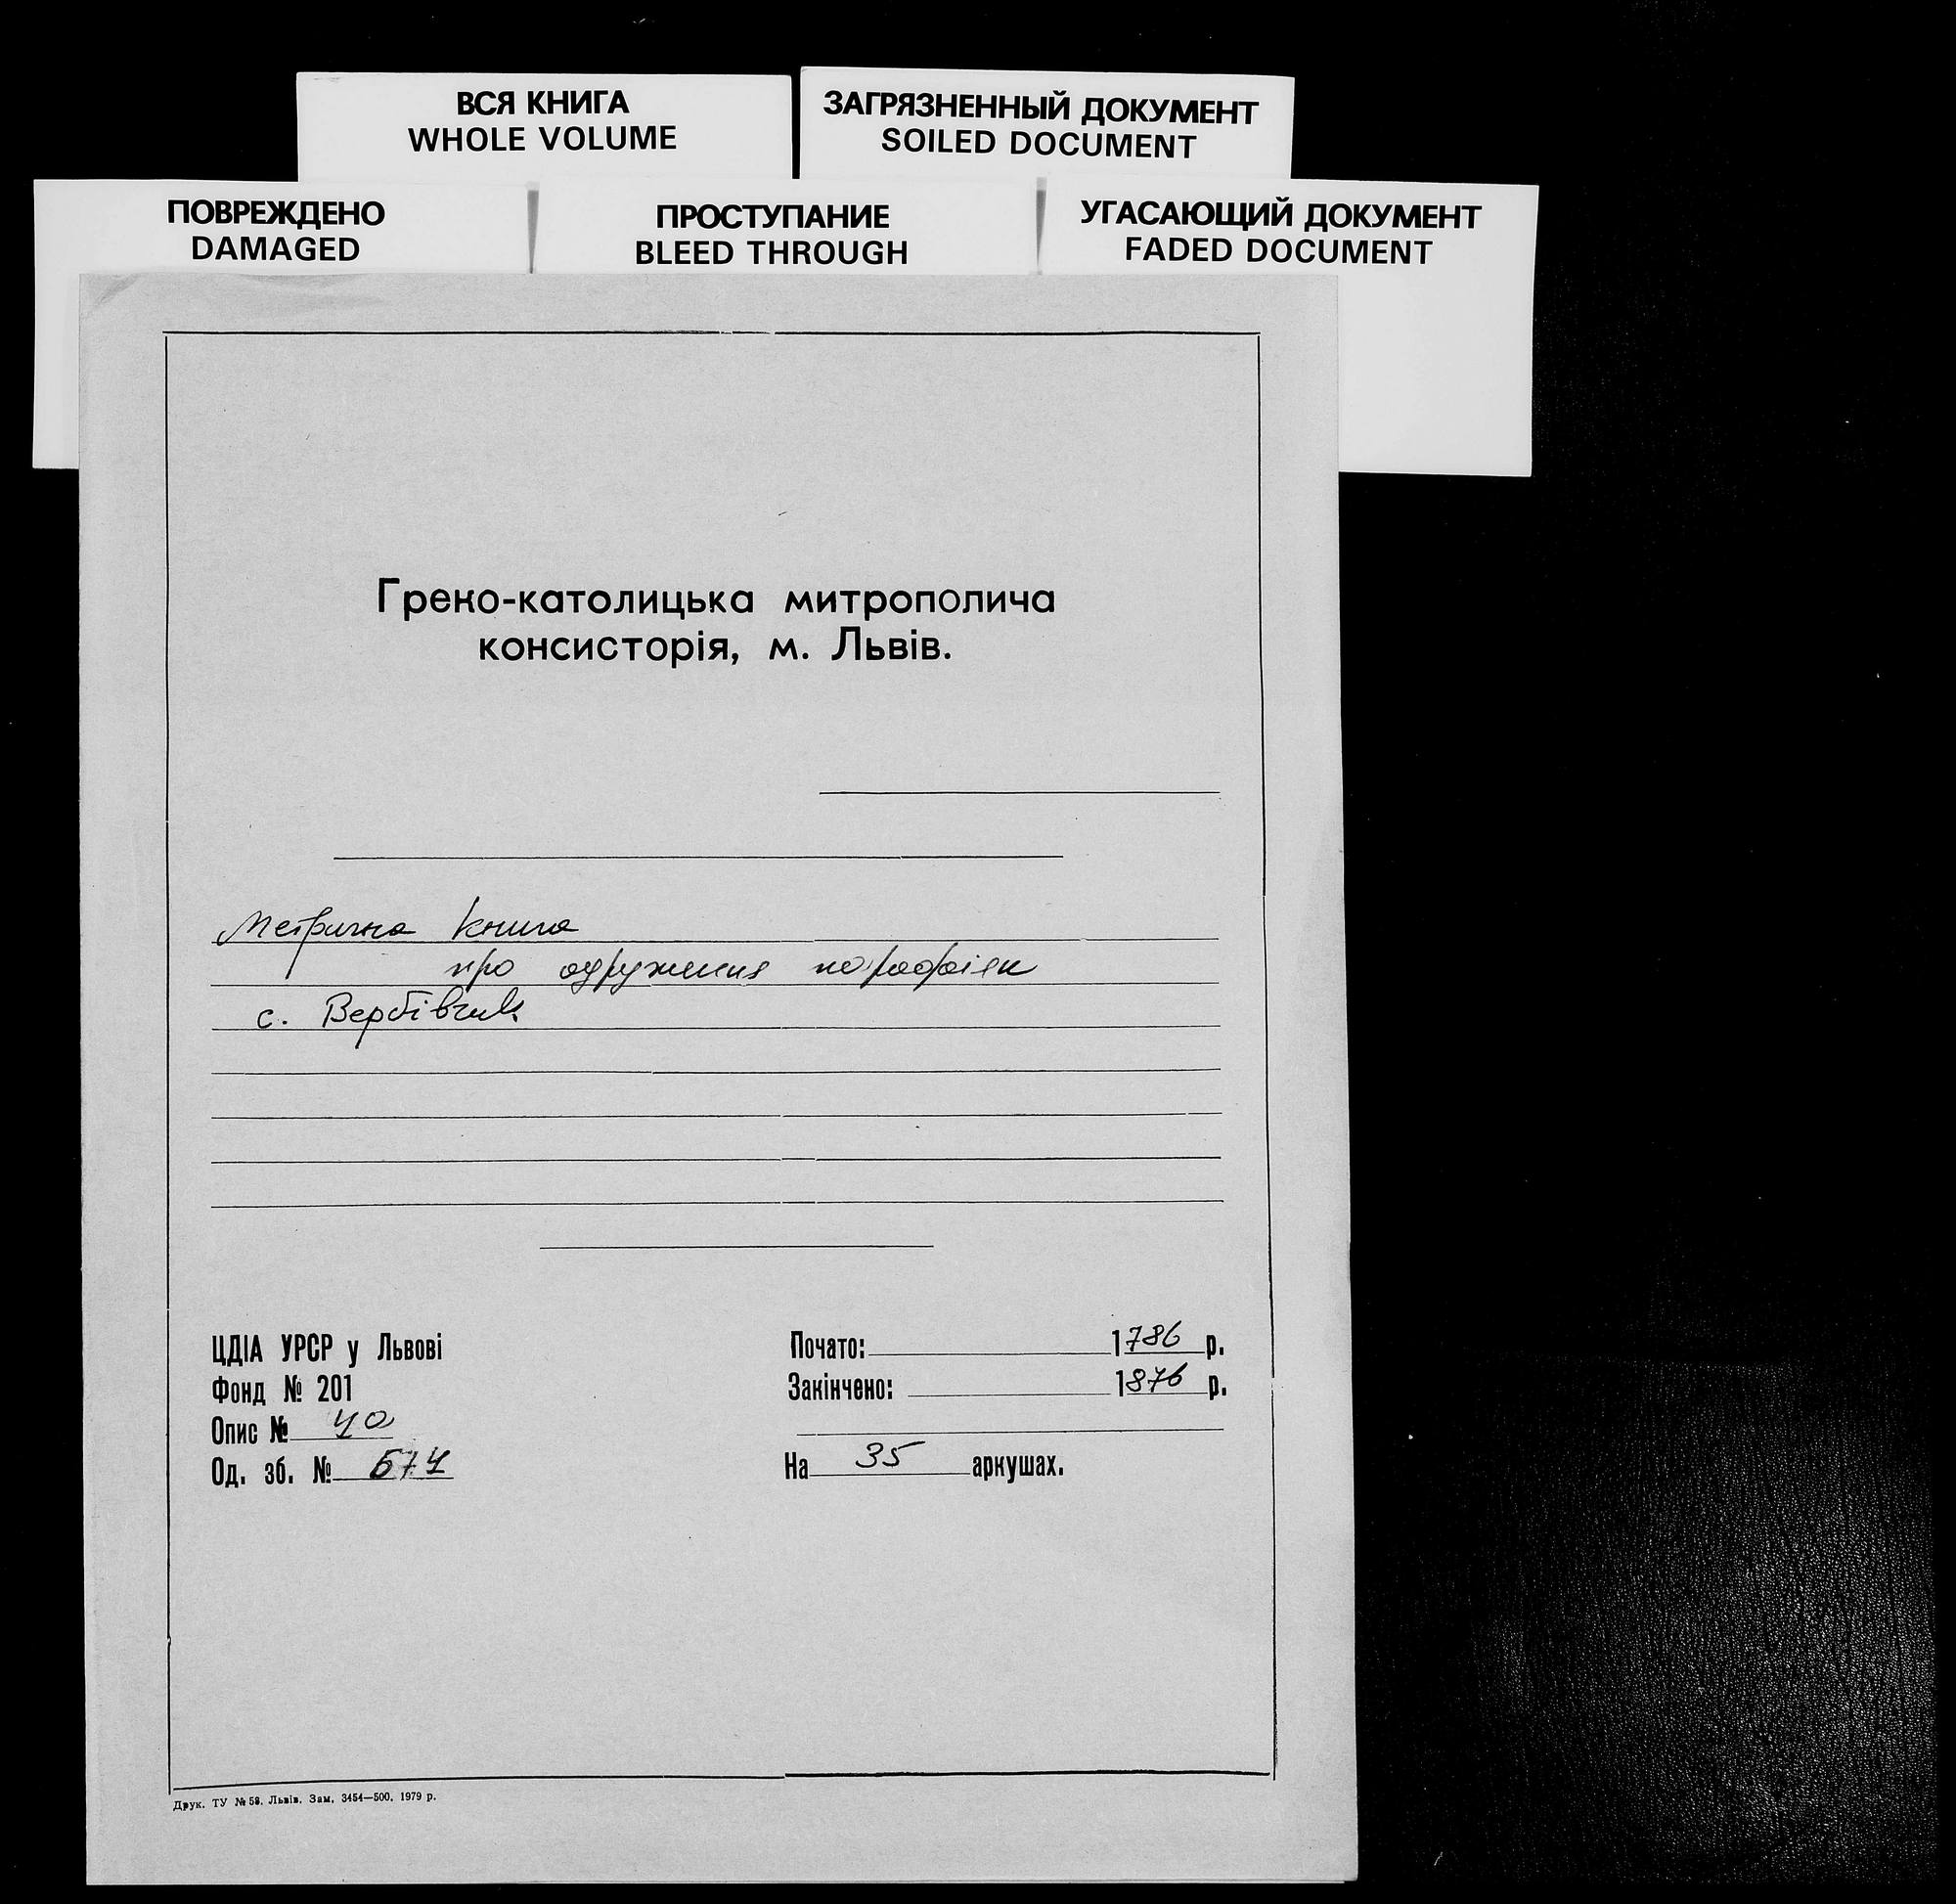 ВСЯ КНИГА
WHOLE VOLUME
ЗАГРЯЗНЕННЫЙ ДОКУМЕНТ
SOILED DOCUMENT
ПОВРЕЖДЕНО
DAMAGED
ПРОСТУПАНИЕ
BLEED THROUGH
УГАСАЮЩИЙ ДОКУМЕНТ
FADED DOCUMENT
Греко-католицька митрополича
консисторія, м. Львів.
Метрична книга
про одруження парафіян
с. Вербівчик
ЦДІА УРСР у Львові
Фонд № 201
Опис № 4а
Од. зб. №
Почато: 1786 р.
Закінчено: 1876 р.
На 35 аркушах.
Друк. ТУ № 58. Львів. Зам. 3454—500. 1979 р.